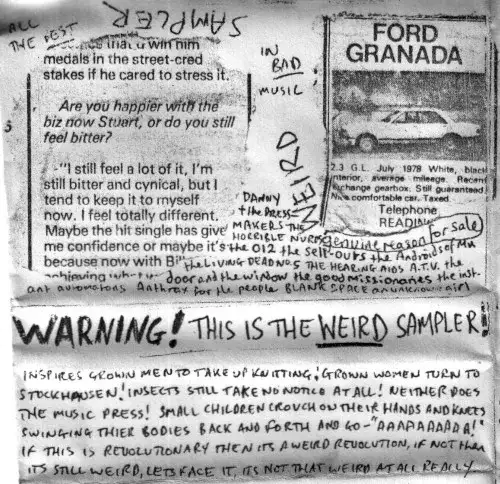 ALL
THE BEST
SAMPLER
IN
BAD
MUSIC
WEIRD
that u win him
medals in the street-cred
stakes if he cared to stress it.
Are you happier with the
biz now Stuart, or do you still
feel bitter?
-"I still feel a lot of it, I'm
still bitter and cynical, but I
tend to keep it to myself
now. I feel totally different.
Maybe the hit single has give
me confidence or maybe it's
because now with Bi
achieving
FORD
GRANADA
2.3 G.L. July 1978 White, black
interior, average mileage. Recent
exchange gearbox. Still guaranteed
New comfortable car. Taxed.
Telephone
READING
genuine reason for sale
DANNY
+ the DRESS
MAKERS THE
HORRIBLE NURDS
the 012 the SELF-OUTS the Androids of Mu
the LIVING DEAD NOS THE HEARING AIDS A.T.V. the
door and the window the good missionaries the inst-
ant automatons Anthrax for the people BLANK SPACE an unknown girl
WARNING! THIS IS THE WEIRD SAMPLER!
INSPIRES GROWN MEN TO TAKE UP KNITTING! GROWN WOMEN TURN TO
STOCKHAUSEN! INSECTS STILL TAKE NO NOTICE AT ALL! NEITHER DOES
THE MUSIC PRESS! SMALL CHILDREN CROUCH ON THEIR HANDS AND KNEES
SWINGING THIER BODIES BACK AND FORTH AND GO-"AAAPAAAADA!"
IF THIS IS REVOLUTIONARY THEN ITS A WEIRD REVOLUTION, IF NOT then
ITS STILL WEIRD, LETS FACE IT, ITS NOT THAT WEIRD AT ALL REALLY.